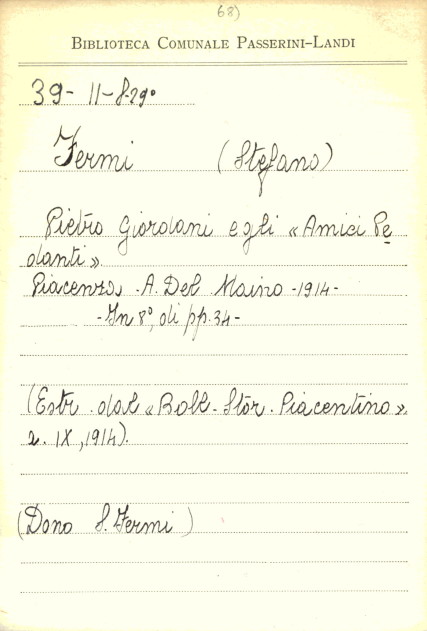 68)
BIBLIOTECA COMUNALE PASSERINI-LANDI
39- 11-8-29º
Fermi (Stefano)
Pietro Giordani e gli «Amici Pe
danti»
Piacenza, -A. Del Maino -1914-
-In 8º, di pp. 34-
(Estr. dal «Boll. Stor. Piacentino».
a. IX, 1914).
(Dono S. Fermi)